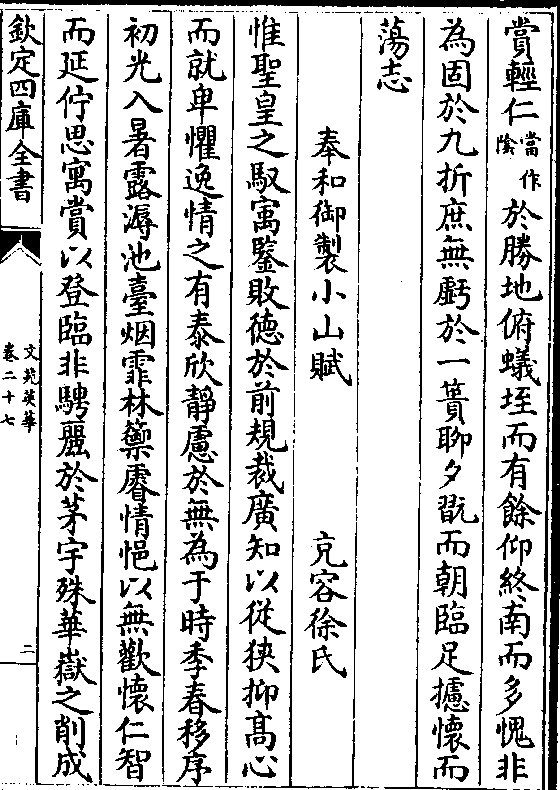 賞輕仁當作陰於勝地俯蟻垤而有餘仰終南而多愧非
為固於九折庶無虧於一簣聊夕翫而朝臨足攄懷而
蕩志
奉和御製小山賦 充容徐氏
惟聖皇之馭寓鑒敗德於前規裁廣知以從狹抑髙心
而就卑懼逸情之有泰欣靜慮於無為于時季春移序
初光入暑露濕池臺烟霏林籞睿情悒以無歡懷仁智
而延佇思寓賞以登臨非騁麗於茅宇殊華嶽之削成
欽定四庫全書
文苑英華
卷二十七
二